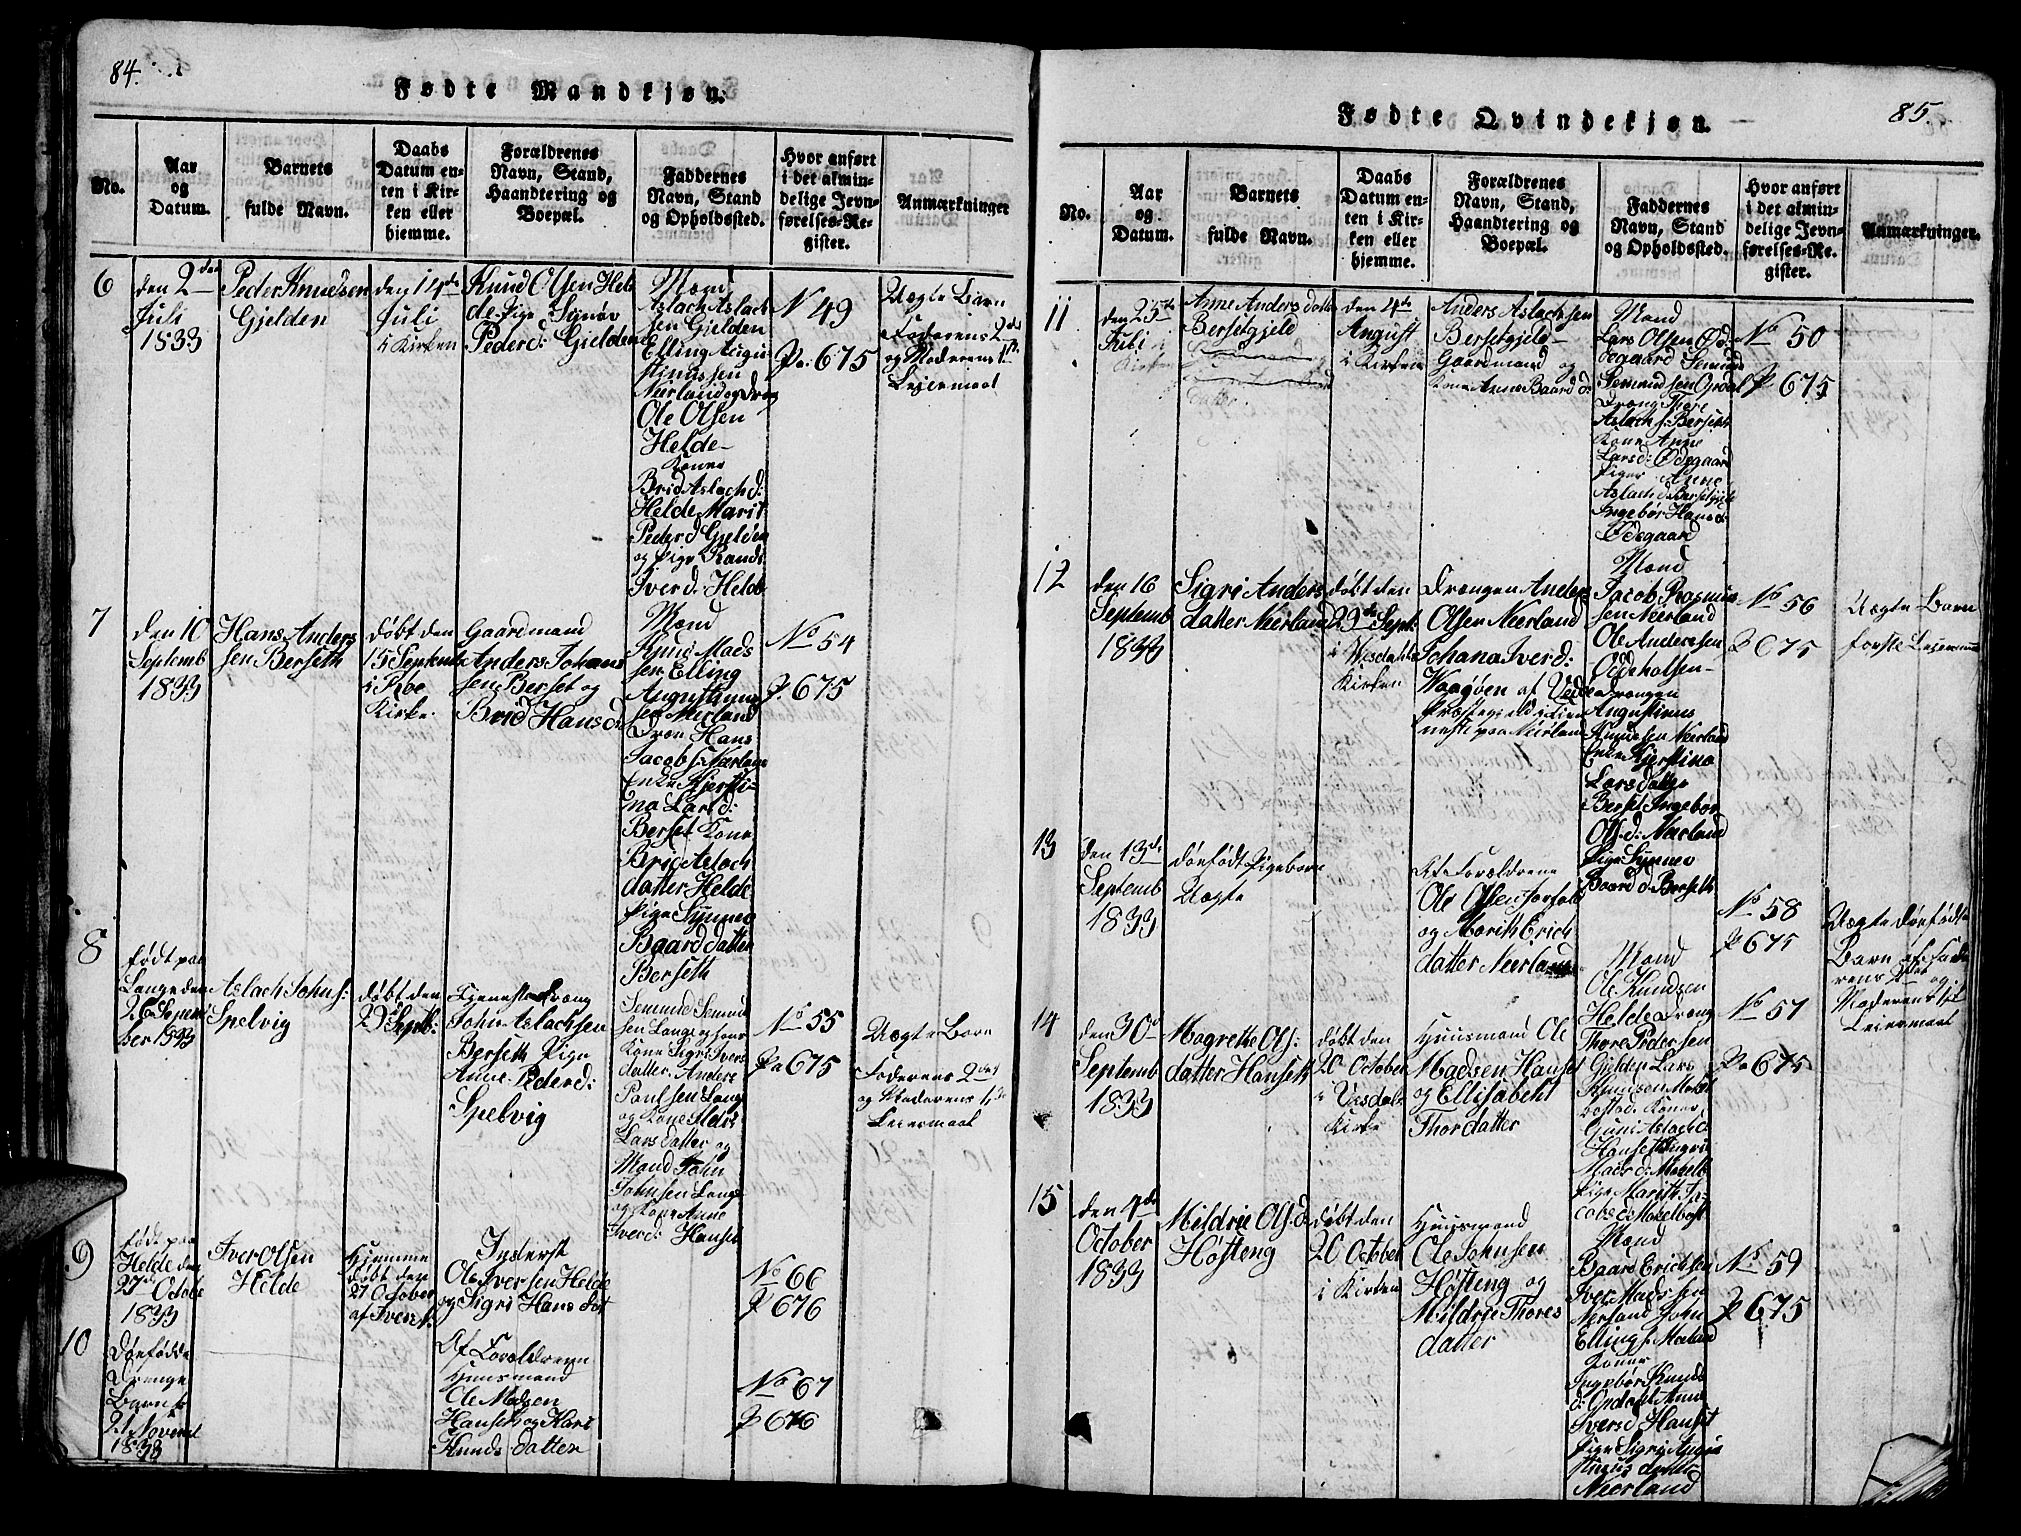 84.
Fødte Mandkjøn.
No.
Aar
og
Datum.
Barnets
fulde Navn.
Daabs
Datum en-
ten i Kir-
ken eller
hjemme.
Forældrenes
Navn, Stand,
Haandtering og
Boepæl.
Faddernes
Navn, Stand
og Opholdssted.
Hvor anført
i det almin-
delige Jevn-
førelses-Re-
gister.
Anmærkninger
6
den 2den
Juli
1833
Peder Knudsen
Gjelden
den 14de
Juli
i Kirken
Knud Olsen Hel-
de Pige Synøv
Pederd: Gjelden
Mænd
Aslach Aslach
sen Gjelden
Elling Augu
stinussen
Neerland og Dreng
Ole Olsen
Helde-
Koner
Brid Aslachd:
Helde Marit
Pederd Gjelden
og Pige Randi
Iverd: Helde
N 49
Pa. 675
Uægte Barn
Faderens 2det
og Moderens 1ste
Leiermaal
7
den 10
Septemb
1833
Hans Anders
sen Berseth
døbt den
15 Septemb
i
Kirke
Gaardmand
Anders Johans
sen Berset og
Brid Hansd:
Mænd
Knut Mads
sen Elling
Augustinus
sen Neerland
Dreng Hans
Jacobs: Neerland
Enke Kjersti-
na Larsd:
Berset Kone
Brid Aslach
datter Helde
Pige Synnev
Baard datter
Berseth
No 54
P. 675
8
født paa
Lange den
26 Septem
ber 1833
Aslach Johns:
Spelvig
døbt den
29 Septb:
Tjenestedreng
John Aslachsen
Berseth Pige
Anne Pederd:
Spelvig
Semund Semund
sen Lange og hans
Kone Sigri Ivers
datter. Anders
Paulsen Lange
og Kone
Lars datter og
Mand John
Johnsen Lange
og Kone Anne
Iverd: Hanset
No 55
Pa 675
Uægte Barn
Faderens 2det
og Moderens 1ste
Leiermaal
9
født paa
Helde den
27de Octobe
1833
Iver Olsen
Helde
Hjemme
døbt den
27 October
af Iver
Inderst
Ole Iversen Helde
og Sigri Hans dat
No 66
P 676
10
Dødfødde
Drenge
Barn
21 Novemb
1833
Af Forældrene
Huusmand
Ole Madsen
Hanset og Kari
Knuds datter
No 67
P 676
85.
Fødte Qvindekjøn.
No.
Aar
og
Datum.
Barnets
fulde Navn.
Daabs
Datum en-
ten i Kir-
ken eller
hjemme.
Forældrenes
Navn, Stand,
Haandtering og
Boepæl.
Faddernes
Navn, Stand
og Opholdssted.
Hvor anført
i det almin-
delige Jevn-
førelses-Re-
gister.
Anmærkninger.
11
den 25de
Juli
Anne Anders datter
Bersetgjeld
den 4de
August
i Kirken
Anders Aslachsen
Bersetgjeld-
Gaardmand og
Kone Anne Baard d:
Mænd
Lars Olsen Ød-
degaard Semund
Semundsen Opdal
Dreng Thore
Aslachs: Berseth
Kone Anne
Larsd: Ødegaard
Piger Anne
Aslachd Bersetgjeld
Ingebør Hansd:
Ødegaard
No 50
P 675
12
den 16
Septemb
1833
Sigri Anders
datter Neerland
døbt den
29de Sept.
i Veedals
Kirken
Drengen Anders
Olsen Neerland
Johana Iverd:
Waagøen af Vedø
Præstegjeld i
neste paa Neerland
Mænd
Jacob Rasmus
sen Neerland
Ole Andersen
Oldeholsen-
Drengen
Augustinus
Knudsen Neerland
Enke Kjerstina
Lars datter
Berset Ingebør
Ols. d: Neerland
Pige Synnev
Baard d: Berseth
No 56
P 675
Uægte Barn
første Leiermaal
13
den 13de
Septemb
1833
dødfødt Pigebarn
Uægte
Af Forældrene
Ole Olsen
og Marith Erich
datter Neerland
No 58
P 675
Uægte dødfødt
Barn af Fade
rens 2det og
Moderens 1ste
Leiermaal
14
den 30
Septemb
1833
Magrethe Ols:
datter Hanseth
døbt den
20 October
i Veedals
Kirke
Huusmand Ole
Madsen Hanset
og Ellisabeht
Thordatter
Mænd
Ole Knudsen
Helde Dreng
Thore Pedersen
Gjelden Lars
Knudsen
Koner
Guni Aslach d
Hanseth
Mads d:
Pige Marith Ja-
cobs d:
No 57
Pa 675
15
den 7de
October
1833
Mildrie Ols. d.
Høsteng
døbt den
20 October
i Kirken
Huusmand
Ole Johnsen
Høsteng og
Mildrie Thores
datter
Mænd
Baard Erichsen
Iver Madsen
Nerland John
Ellings:
Koner
Ingebør Knuds
d: Opdal Anne
Ivers d Hanset
Pige Sigri Augus
tinus datter
Neerland
No 59
P 675